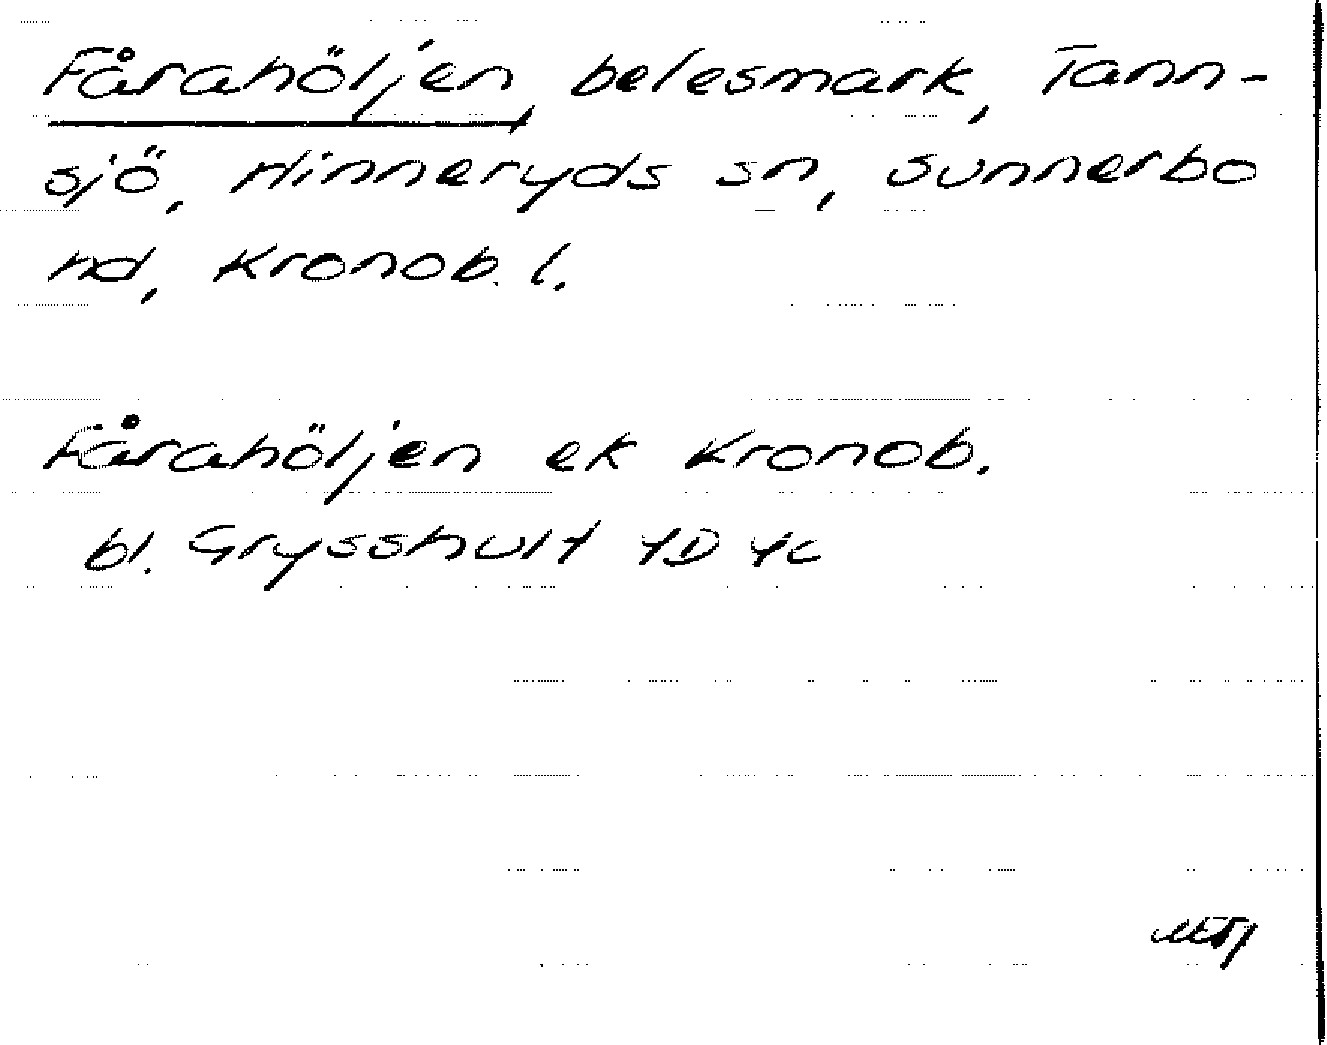 Fårahöljen, betesmark, Tann-
sjö, Hinneryds sn, Sunnerbo
hd, Kronob. l.
Fårahöljen ek Kronob.
bl. Grysshult 4D 4c